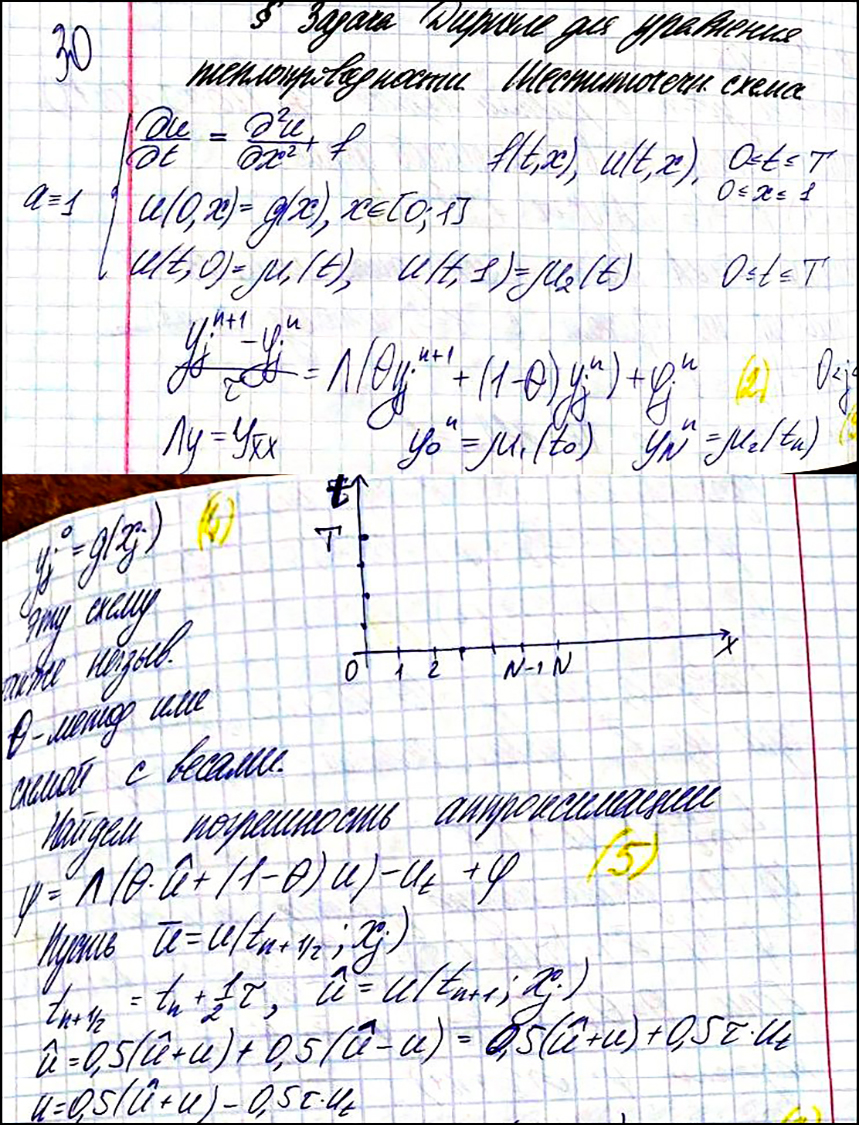 30
§ Задача Дирихле для уравнения
теплопроводности. Шеститочечн. схема
a≡1
∂u/∂t = ∂²u/∂x² + f   f(t,x), u(t,x), 0≤t≤T
0≤x≤1
u(0,x)=g(x), x∈[0;1]
u(t,0)=μ₁(t), u(t,1)=μ₂(t)   0≤t≤T
(yⱼⁿ⁺¹ - yⱼⁿ)/τ = Λ(θyⱼⁿ⁺¹ + (1-θ)yⱼⁿ) + φⱼⁿ (2) 0<j<
Λy = y_x̄x   y₀ⁿ = μ₁(t₀)   y_Nⁿ = μ₂(tₙ)
yⱼ⁰ = g(xⱼ) (4)
t
T
0 1 2 N-1 N x
Эту схему
также назыв.
θ-метод или
схемой с весами.
Найдем погрешность аппроксимации
ψ = Λ(θ·û + (1-θ)u) - uₜ + φ (5)
Пусть ū = u(tₙ₊₁/₂; xⱼ)
tₙ₊₁/₂ = tₙ + ½τ, û = u(tₙ₊₁; xⱼ)
û = 0,5(û+u) + 0,5(û-u) = 0,5(û+u) + 0,5τ·uₜ
u = 0,5(û+u) - 0,5τ·uₜ